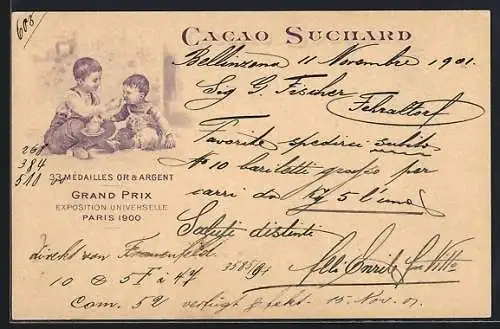 608
CACAO SUCHARD
Bellinzona 11 Novembre 1901.
Sig G. Fischer
Fehraltorf
Favorite spedirci subito
No 10 barilotti grasso per
carri da Kg 5 l'uno
Saluti distinti
268
384
510
33 MÉDAILLES OR & ARGENT
GRAND PRIX
EXPOSITION UNIVERSELLE
PARIS 1900
Direkt von Frauenfeld
10 5 F i 47
Com. 52 verfügt & fakt. 15. Nov. 01.